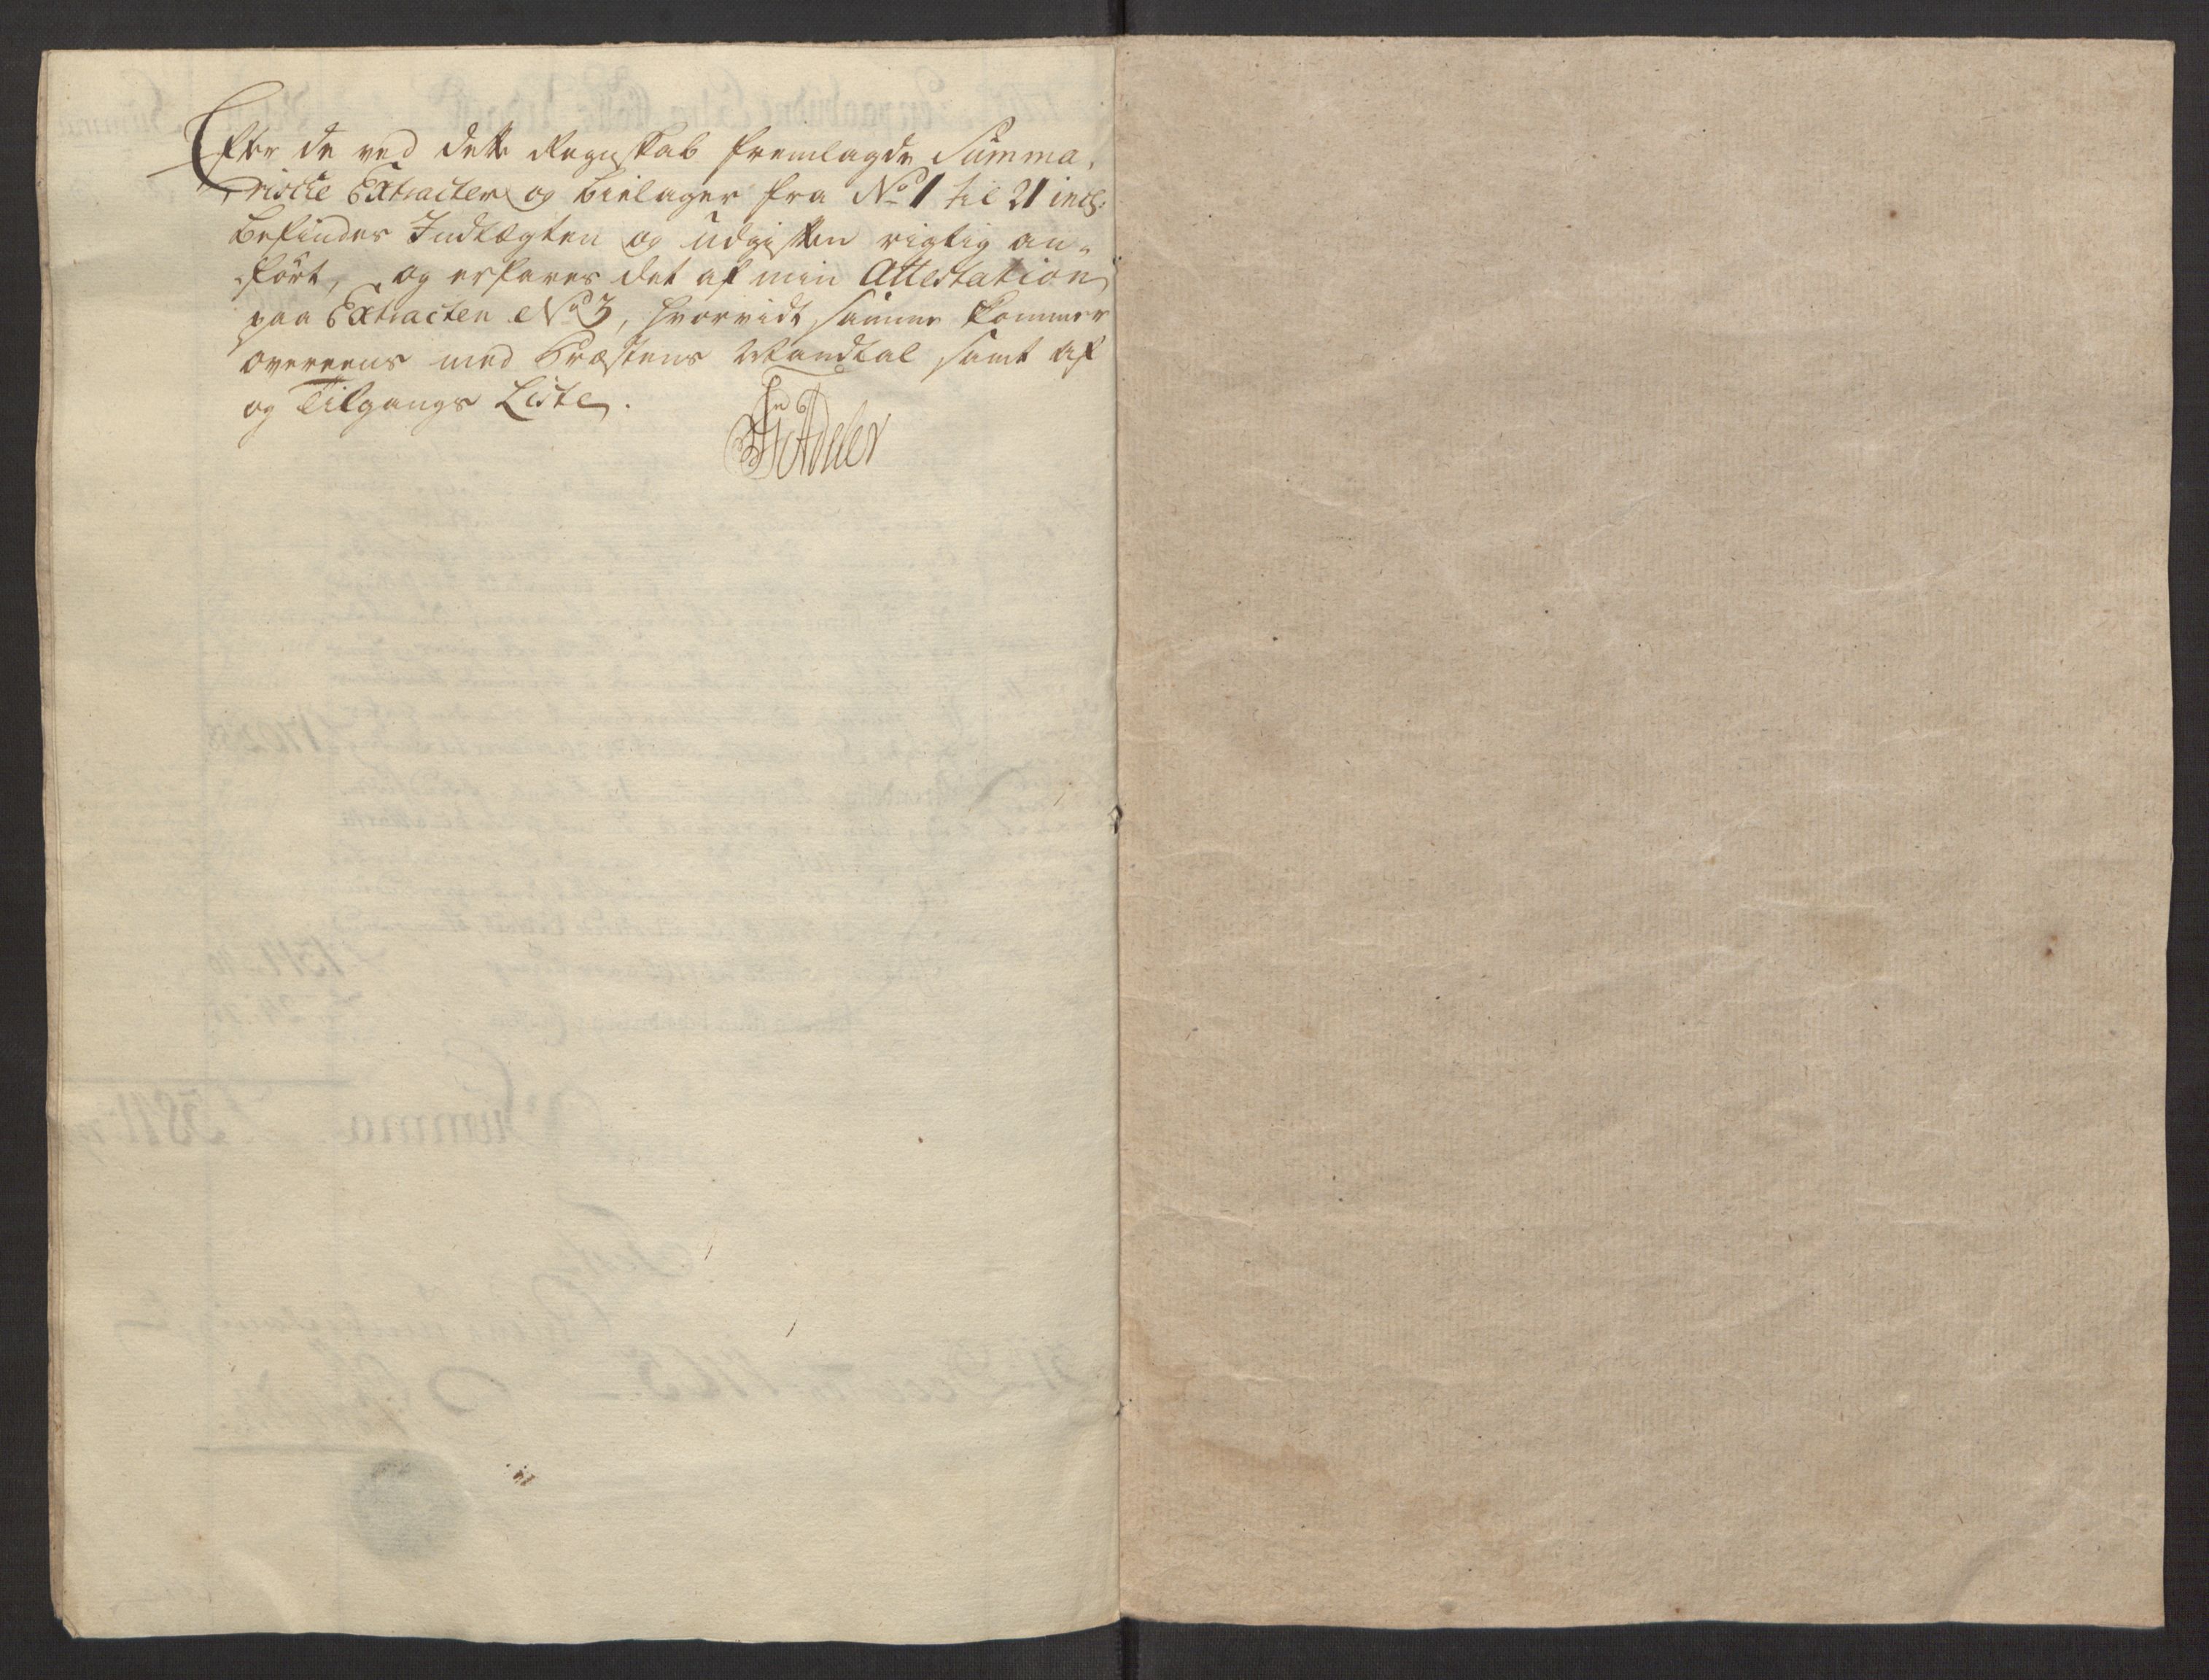 Efter de ved dette Regnskab fremlagde Summa,
riske Extracter og bielager fra No 1 til 21 incl:
befindes Indtægten og udgiften rigtig an-
ført, og erfares det af min Attestation
paa Extracten No 3, hvorvidt samme kommer
overeens med Præstens Mandtal samt af
og Tilgangs Liste.
Adeler